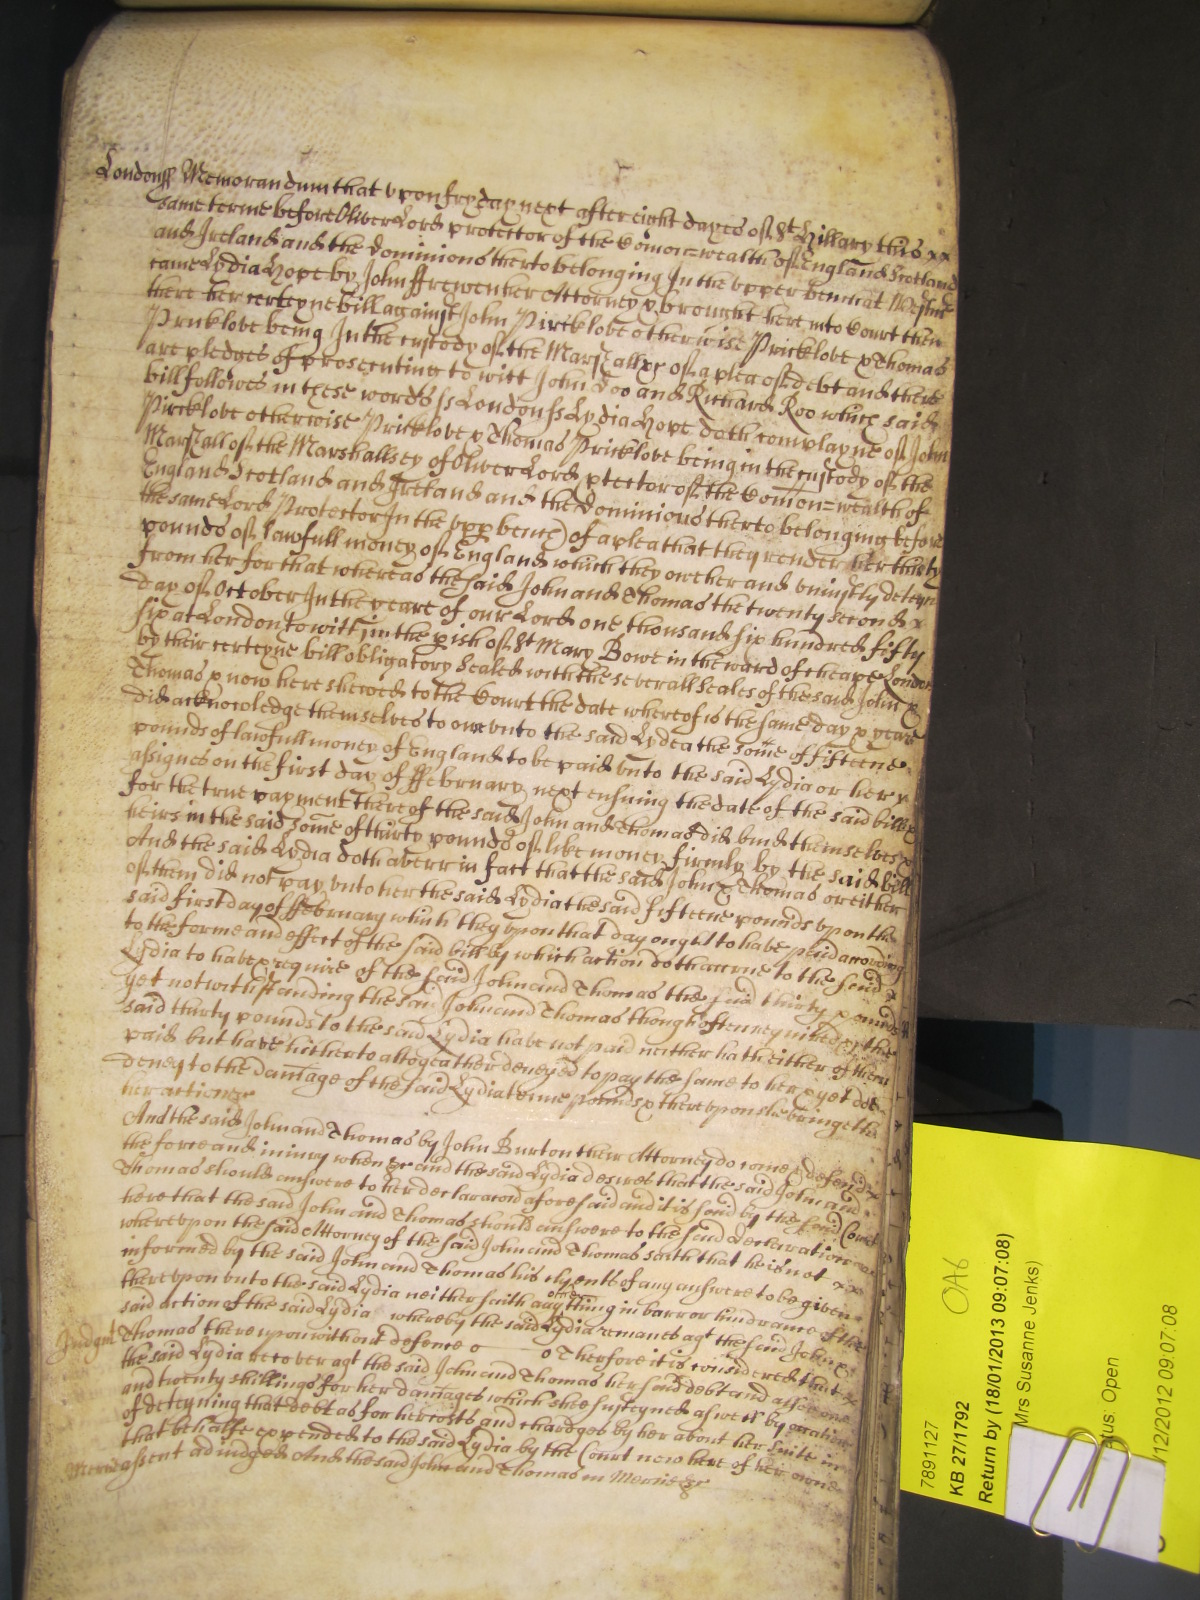 Londonss Memorandum that vpon fryday next after eight dayes of St Hillary this xx
same terme before Oliver Lord protector of the Comon=wealth of England Scotland
and Ireland and the dominions therto belonging In the vpper bench at Westmr
came Lydia Hope by John ffrewen her Attorney & brought here into Court then
there her certeyne bill against John Pircklove otherwise Pricklove & Thomas
Pricklove being In the custody of the Marshall &c of a plea of debt and there
are pledges of prosecution to witt John Doo and Richard Roo which said
bill followes in these words ss London ss Lydia Hope doth complayne of John
Pircklove otherwise Pricklove & Thomas Pricklove being in the custody of the
Marshall of the Marshallsey of Oliver Lord ptector of the Comon=wealth of
England Scotland and Ireland and the Dominions therto belonging before
the same Lord Protector In the vpp bench of a plea that they render her thirty
pounds of lawfull money of England which they owe her and vniustly deteyn
from her for that whereas the said John and Thomas the twenty second x
day of October In the yeare of our Lord one thousand six hundred fifty
six at London to witt in the pish of St Mary Bowe in the ward of Cheape London
by their certeyne bill obligatory Sealed with the severall Seales of the said John &
Thomas & now here shewed to the Court the date whereof is the same day & yeare
did acknowledge themselves to owe vnto the said Lydia the some of fifteene
pounds of lawfull money of England to be paid vnto the said Lydia or her
assignes on the first day of ffebruary next ensuing the date of the said bill &
for the true payment thereof the said John and Thomas did bind themselves &
heirs in the said some of thirty pounds of like money firmly by the said bill
And the said Lydia doth averr in fact that the said John & Thomas or either
of them did not pay vnto her the said Lydia the said fifteene pounds vpon the
said first day of ffebruary which they vpon that day ought to have paid according
to the forme and effect of the said bill by which action doth accrue to the said
Lydia to have & require of the said John and Thomas the said thirty pounds
yet notwithstanding the said John and Thomas though often required &c the
said thirty pounds to the said Lydia have not paid neither hath either of them
paid but have hitherto altogeather denyed to pay the same to her & yet doe
deney to the damage of the said Lydia tenne pounds & therevpon she bringeth
her action &c
And the said John and Thomas by John Burton their Attorney do come & defend
the force and iniury when &c and the said Lydia desires that the said John and
Thomas should answere to her declaracon aforesaid and it is said by the said Court
here that the said John and Thomas should answere to the said declaration
wherevpon the said Attorney of the said John and Thomas saith that he is not xx
informed by the said John and Thomas his clyents of any answere to be given
therevpon vnto the said Lydia neither saith any thing in barr or hindrance of the
said action of the said Lydia whereby the said Lydia remanes agt the said John &
Judgmt Thomas therevpon without defence Therefore it is considered that
the said Lydia recover agt the said John and Thomas her said debt and
and twenty shillings for her damages which she susteyned aswell by occasion
of deteyning that debt as for her costs and chardges by her about her suite in
that behalfe expended to the said Lydia by the Court now here of her owne
Mercie assent adiudged And the said John and Thomas in Mercie &c
7891127
KB 27/1792
Return by (18/01/2013 09:07:08)
Mrs Susanne Jenks)
OA6
atus: Open
/12/2012 09:07:08